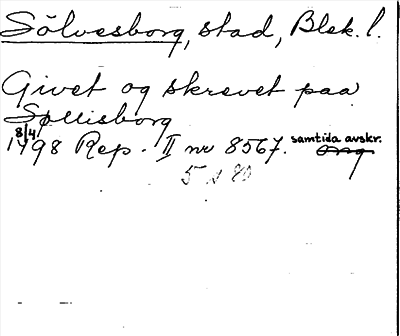 Sölvesborg, stad, Blek. l.
Givet og skrevet paa
Søllisborg
8/4
1498 Rep. II nr 8567. samtida avskr.
orig